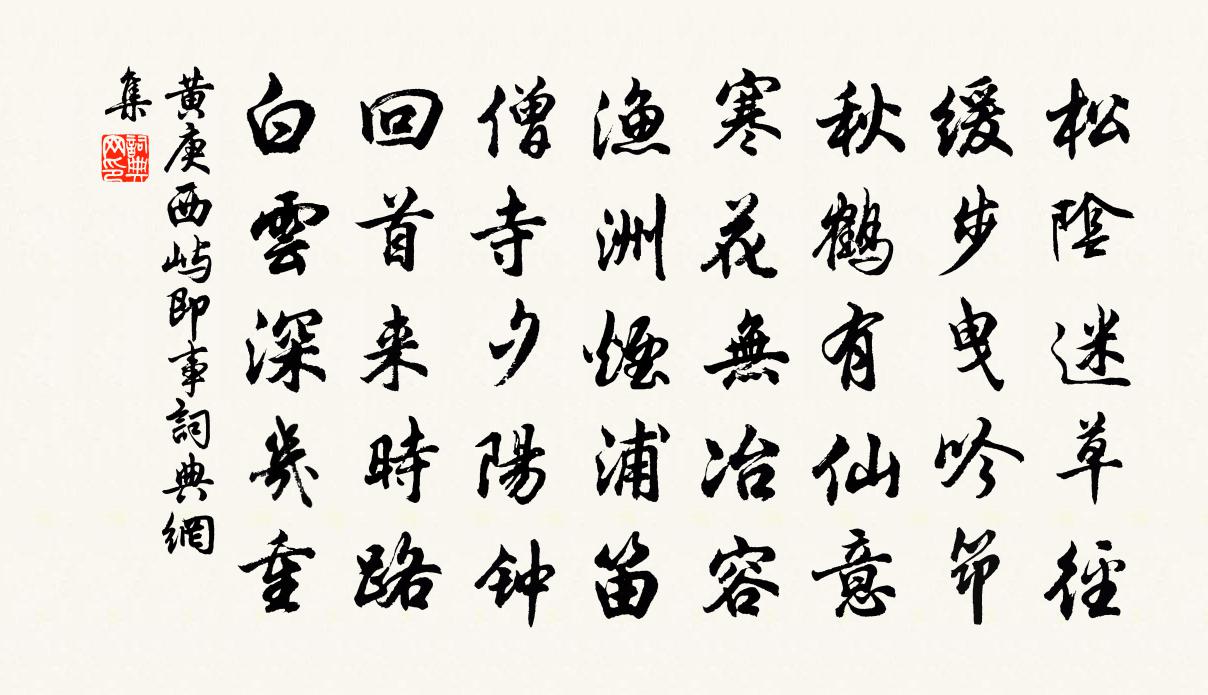 松陰迷草徑
缓步曳吟筇
秋鶴有仙意
寒花無冶容
漁洲煙浦笛
僧寺夕陽钟
回首来時路
白雲深幾重
黃庚西屿即事詞典網
集
詞典網印